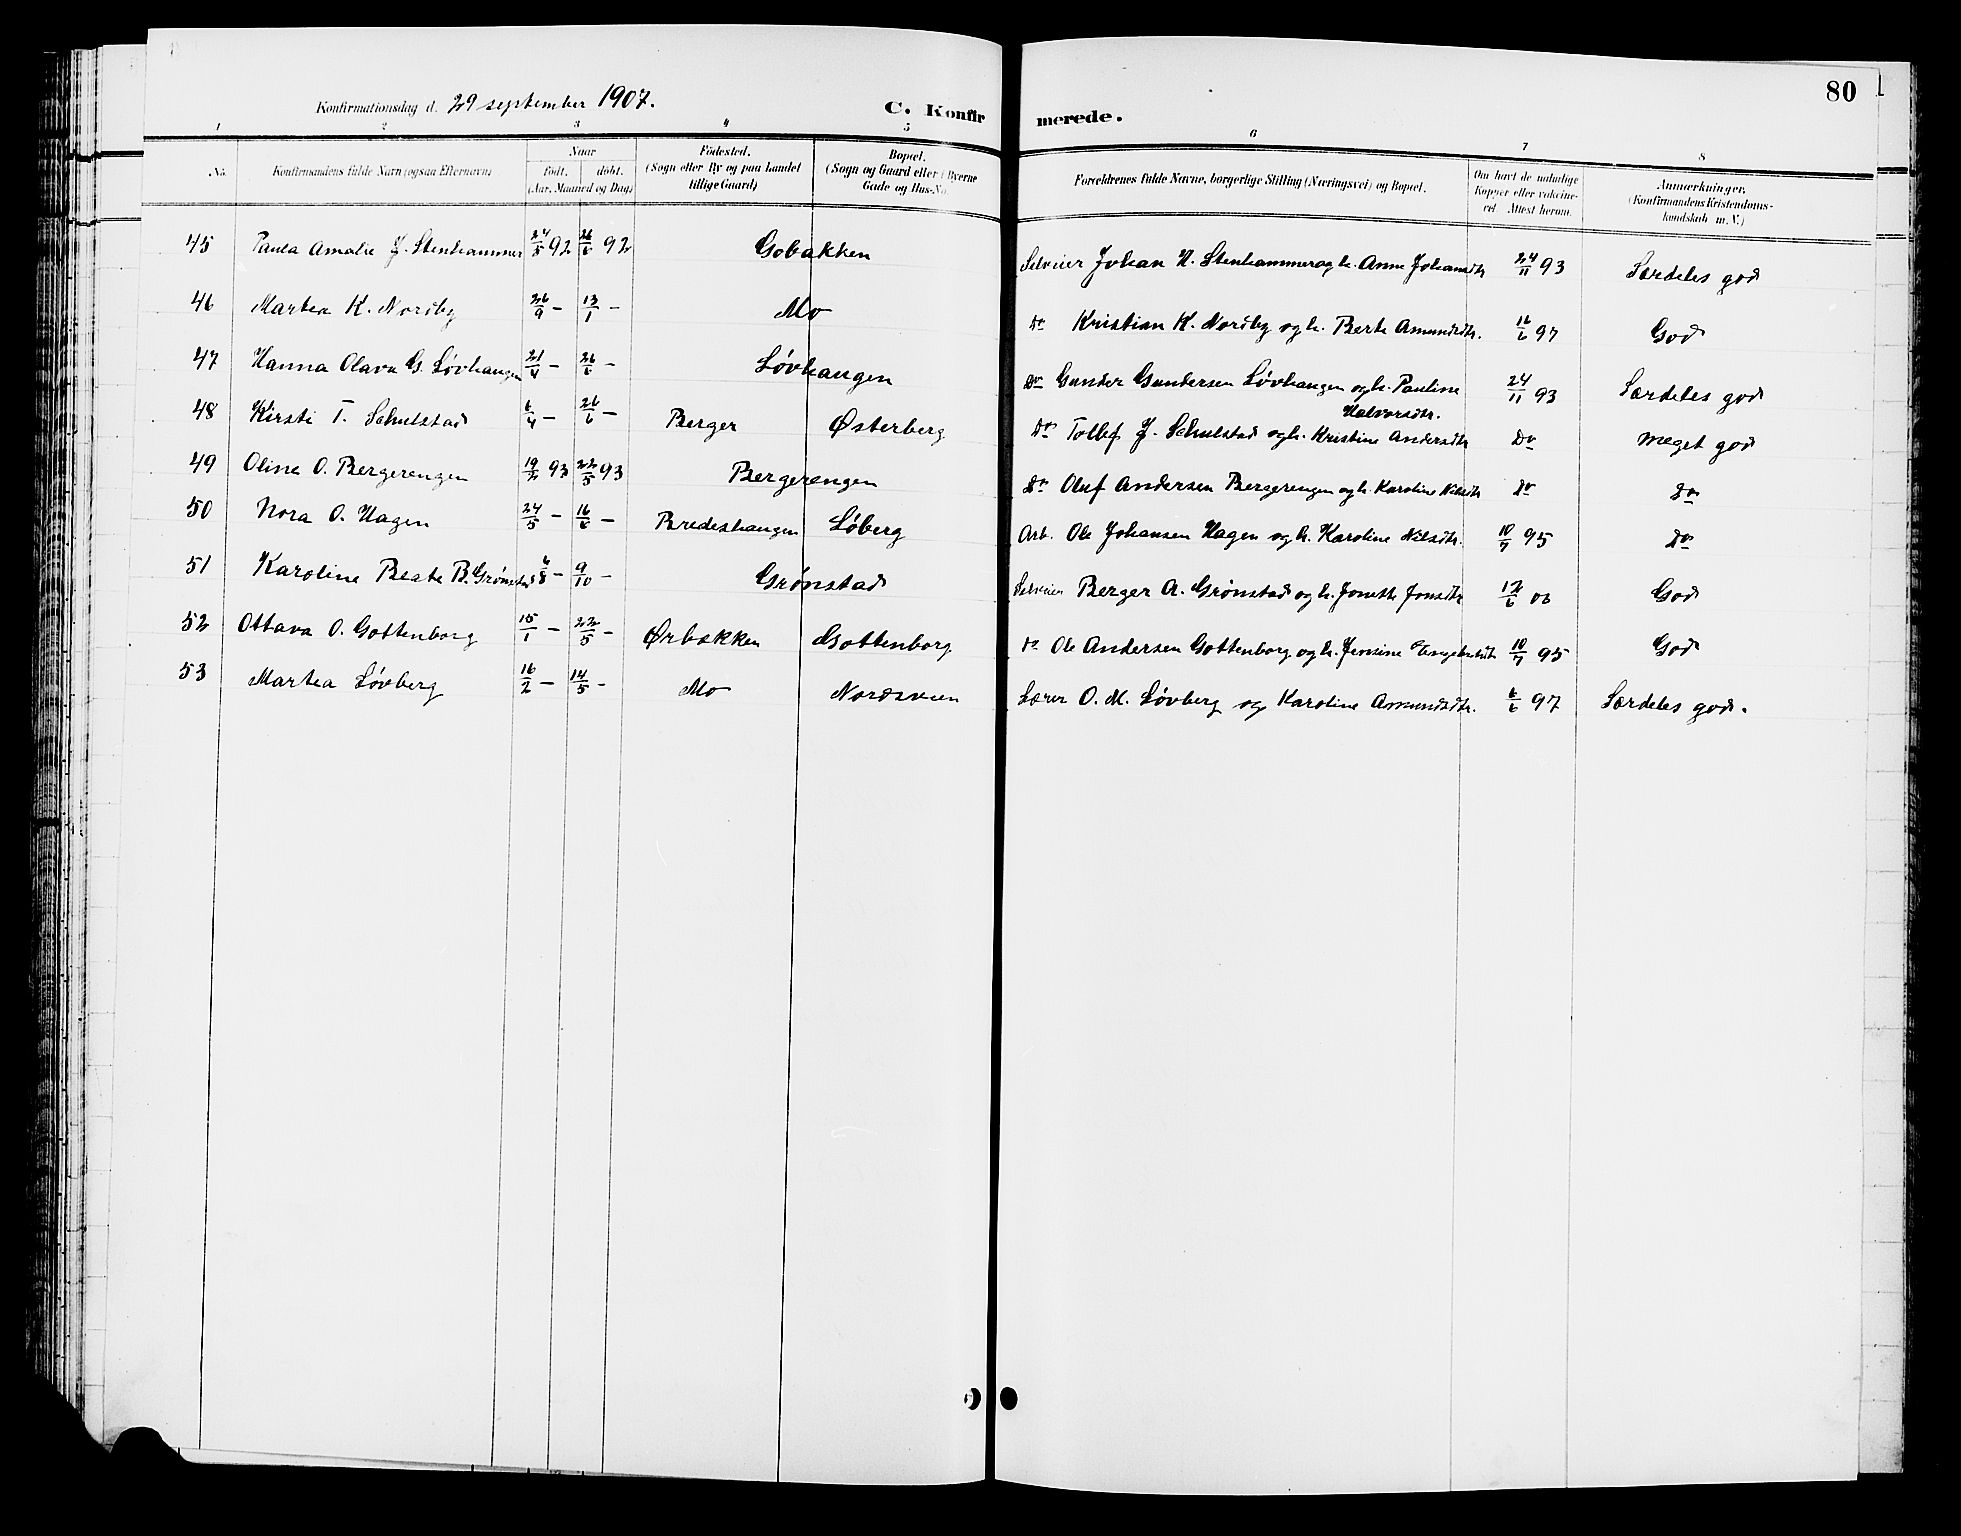 80
Konfirmationsdag d. 29 september 1907.
C. Konfirmerede.
1 2 3 4 5 6 7 8
No. Konfirmandens fulde Navn (ogsaa Efternavn) Naar født. døbt. (Aar, Maaned og Dag) Fødested. (Sogn eller By og paa Landet tillige Gaard) Bopæl. (Sogn og Gaard eller i Byerne Gade og Hus-No. Forældrenes fulde Navne, borgerlige Stilling (Næringsvei) og Bopæl. Om havt de naturlige Kopper eller vakcineret. Attest herom. Anmærkninger. (Konfirmandens Kristendomskundskab m. V.)
45 Paula Amalie J. Stenhammer 24/5 92 26/6 92 Gobakken Selveier Johan N. Stenhammer og h. Anne Johansdtr 24/11 93 Særdeles god
46 Martea K. Nordby 26/9 - 13/1 - Mo Do Kristian K. Nordby og h. Berte Amundsdtr. 16/6 97 God
47 Hanna Olava G. Løvhaugen 21/4 - 26/6 - Løvhaugen Do Gunder Gundersen Løvhaugen og h. Pauline Halvorsdtr. 24/11 93 Særdeles god
48 Kirsti T. Schulstad 6/4 - 26/6 - Berger Østerberg Do Tollef J. Schulstad og h. Kristine Andersdtr Do meget god
49 Oline O. Bergerengen 19/2 93 22/5 93 Bergerengen Do Oluf Andersen Bergerengen og h. Karoline Nilsdtr Do Do
50 Nora O. Hagen 24/5 - 16/6 - Bredeshaugen Løberg Arb. Ole Johansen Hagen og h. Karoline Nilsdtr. 10/7 95 Do
51 Karoline Beate B. Grønstad 6/8 - 9/10 - Grønstad Selveier Berger A. Grønstad og h. Jonette Jonsdtr 12/6 06 God
52 Ottava O. Gottenborg 15/1 - 22/5 - Ørbækken Gottenborg Do Ole Andersen Gottenborg og h. Jensine 10/7 95 God
53 Martea Løvberg 16/2 - 14/5 - Mo Nordsveen Lærer O. M. Løvberg og Karoline Amundsdtr. 6/6 97 Særdeles god.